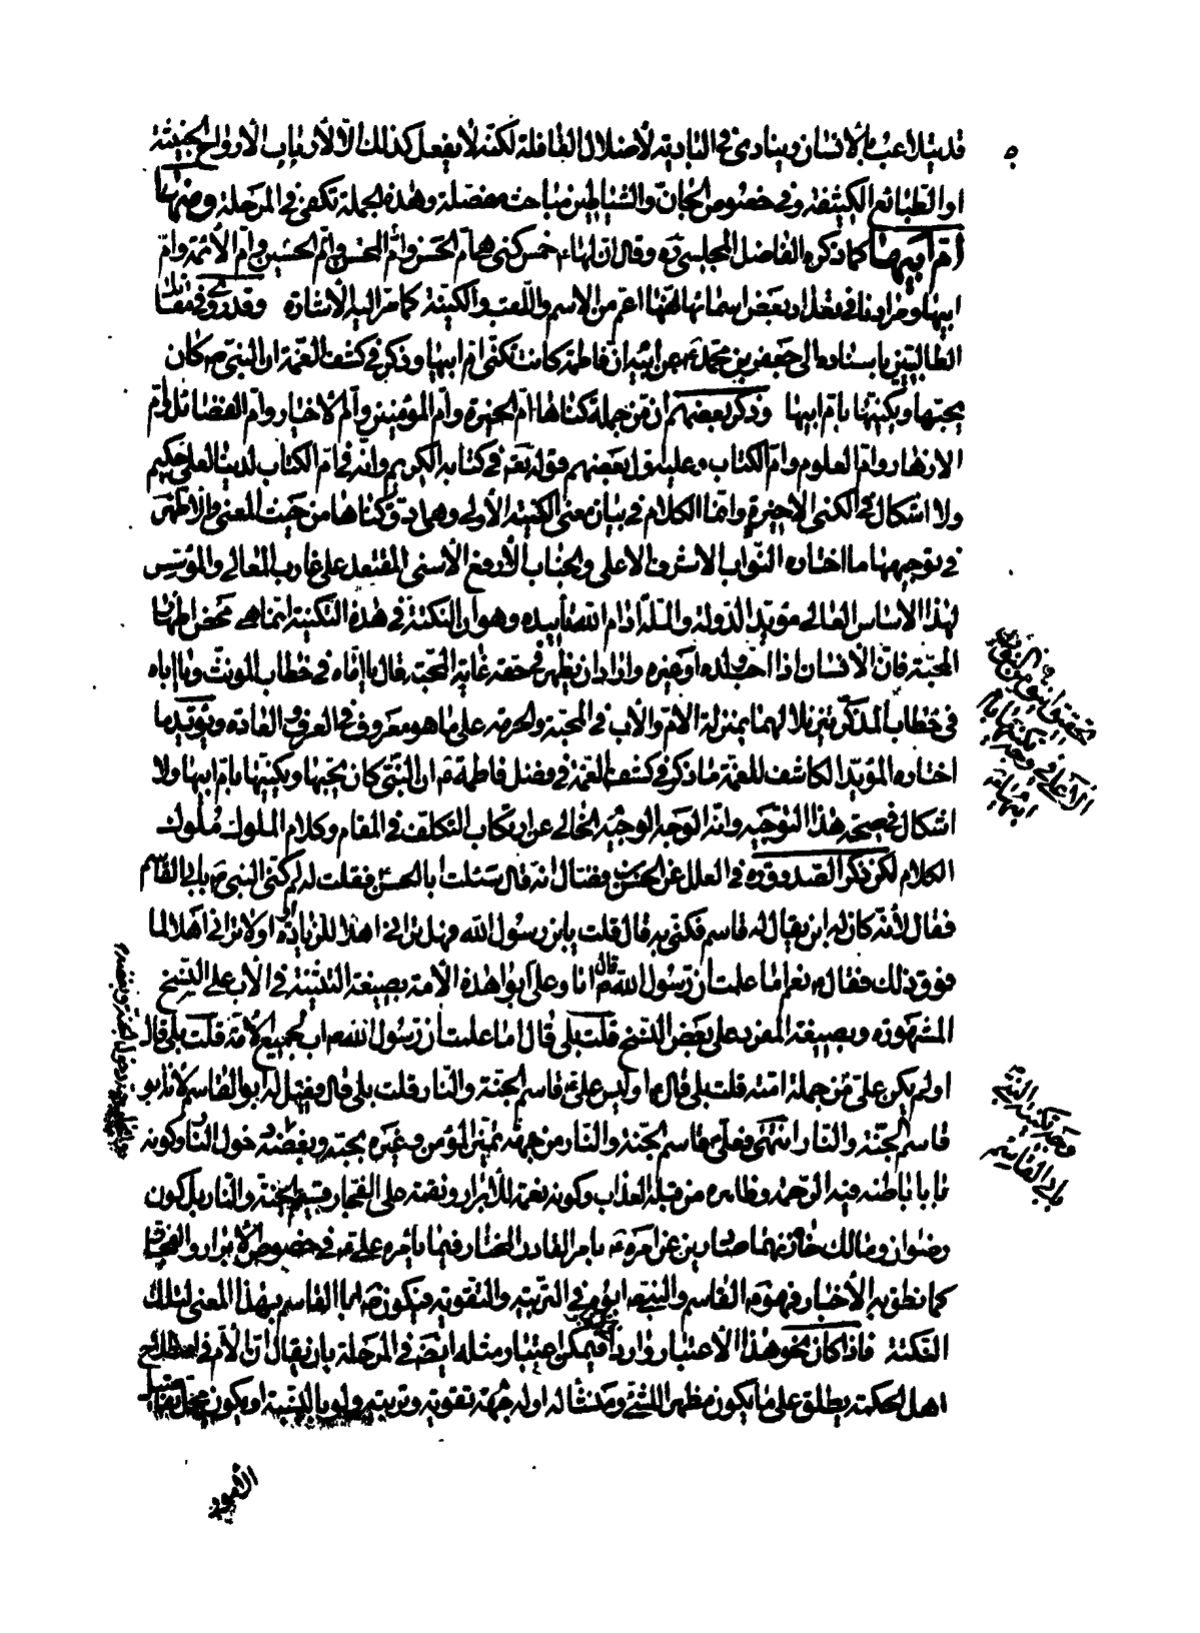 قد يتلاعب بالانسان وينادي في البادية لاضلال القافلة لكنه لا يفعل كذلك الا لارباب الارواح الخبيثة
او الطبائع الكثيفة وفي خصوص الجان والشياطين مباحث مفصلة وهذه الجملة تكفي في المرحلة ومنها
ام ابيها كما ذكره الفاضل المجلسي ره وقال ان لها ع خمس كنى هي ام الحسن وام المحسن وام الحسين وام الائمة وام
ابيها ومرادنا في تعداد بعض اسمائها هنا اعم من الاسم واللقب والكنية كما مر اليه الاشارة وقد روي في مقاتل
الطالبيين باسناده الى جعفر بن محمد ع عن ابيه ان فاطمة كانت تكنى ام ابيها وذكر في كشف الغمة ان النبي ص كان
يحبها ويكنيها بام ابيها وذكر بعضهم ان من جملة كناها ام الخيرة وام المؤمنين وام الاخيار وام الفضائل وام
الازهار وام العلوم وام الكتاب وعليه اول بعضهم قوله تعم في كتابه الكريم وانه في ام الكتاب لدينا لعلي حكيم
ولا اشكال في الكنى الاخيرة وانما الكلام في بيان معنى الكنية الاولى وهي ادق كناها من حيث المعنى والاظهر
في توجيهها ما اختاره النواب الاشرف الاعلى والجناب الارفع الاسنى المقتعد على غارب المعالي والمؤسس
لهذا الاساس العالي مؤيد الدولة والملة ادام الله تأييده وهو ان النكتة في هذه التكنية انما هي محض اظهار
المحبة فان الانسان اذا احب ولده او غيره واراد ان يظهر في حقه غاية المحبة قال يا اماه في خطاب المونث ويا اباه
في خطاب المذكر تنزيلا لهما بمنزلة الام والاب في المحبة والحرمة على ما هو معروف في العرف والعادة ويؤيد ما
اختاره المؤيد الكاشف للغمة ما ذكر في كشف الغمة في فضل فاطمة ع ان النبي كان يحبها ويكنيها بام ابيها ولا
اشكال في صحة هذا التوجيه وانه الوجه الوجيه الخالي عن ارتكاب التكلف في المقام وكلام الملوك ملوك
الكلام لكن ذكر الصدوق ره في العلل عن الحسن بن فضال انه قال سئلت ابا الحسن ع فقلت له لم كنى النبي ص بابي القاسم
فقال لانه كان له ابن يقال له قاسم فكني به قال قلت يابن رسول الله فهل تراني اهلا للزيادة او لا تراني اهلا لما
فوق ذلك فقال ع نعم اما علمت ان رسول الله ص قال انا وعلي ابوا هذه الامة بصيغة التثنية في الاب على النسخ
المشهورة وبصيغة المفرد على بعض النسخ قلت بلى قال اما علمت ان رسول الله ص اب لجميع الامة قلت بلى قال
اولم يكن علي ع من جملة امته قلت بلى قال ع او ليس علي ع قاسم الجنة والنار قلت بلى قال فقيل له ابو القاسم لانه ابو
قاسم الجنة والنار انتهى فعلي ع قاسم الجنة والنار من جهة تميز المؤمن وغيره بحبه وبغضه دخول النار وكونه
بابا باطنه فيه الرحمة وظاهره من قبله العذاب وكونه نعمة للابرار ونقمة على الفجار وقسيم الجنة والنار بل كون
رضوان ومالك خازنهما صادرين عن امره ع بامر القادر المختار فيما يأمره علي ع في خصوص الابرار والفجار
كما نطق به الاخبار فهو ع القاسم والنبي ص ابوه في التربية والتقوية فيكون ص ابا القاسم بهذا المعنى لتلك
النكتة فاذا كان نحو هذا الاعتبار واردا فيمكن اعتبار مثله ايضا في المرحلة بان يقال ان الام في اصطلاح
اهل الحكمة يطلق على ما يكون مظهرا للشئ ومنشأ له او له جهة تقوية وتربية ولو بالنسبة او يكون
تحقيق انيق من النواب
الاعلى في وجه تكنيتها بام
ابيها ع
وجه تكنية النبي
بابي القاسم
الامور